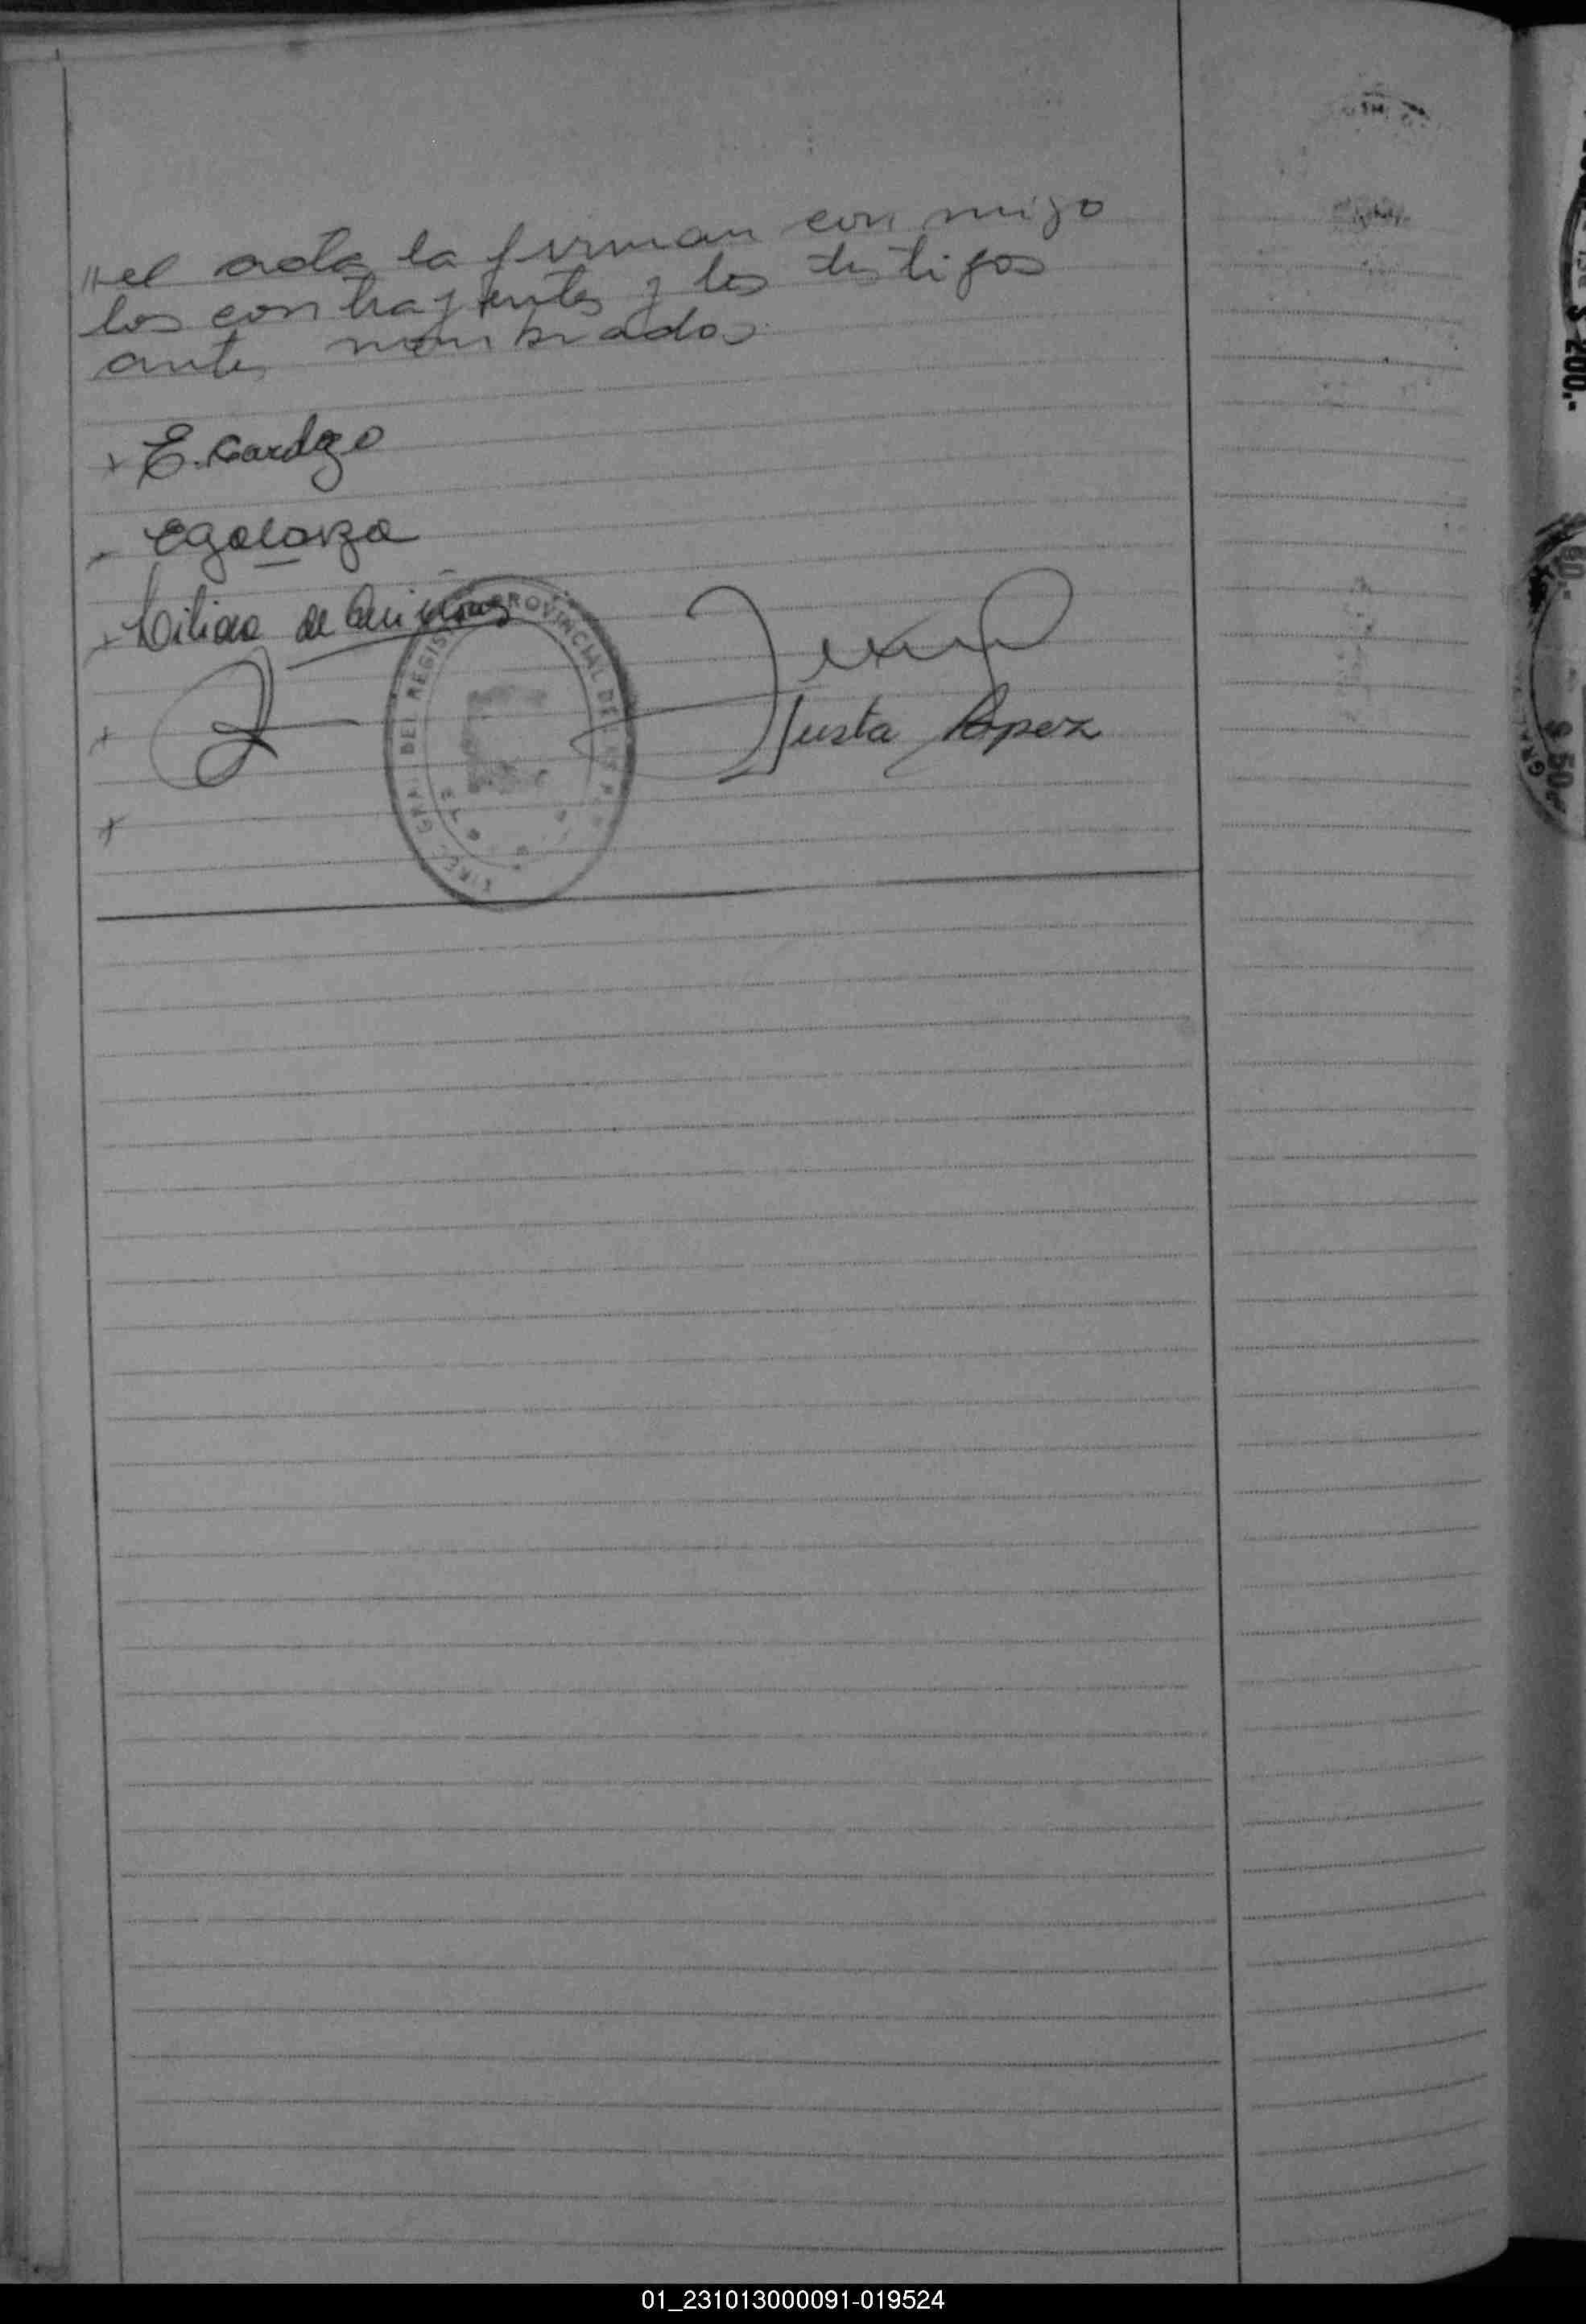 "el acta la firman con migo
los contrayentes y los testigos
antes nombrados
x E. Cardozo
Egalarza
x Liliana de Quiñones
x
Justa Lopez
x
DIREC. GRAL. DEL REGISTRO PROVINCIAL DE LAS PER
$ 200.-
$ 50
GRAL
01_231013000091-019524